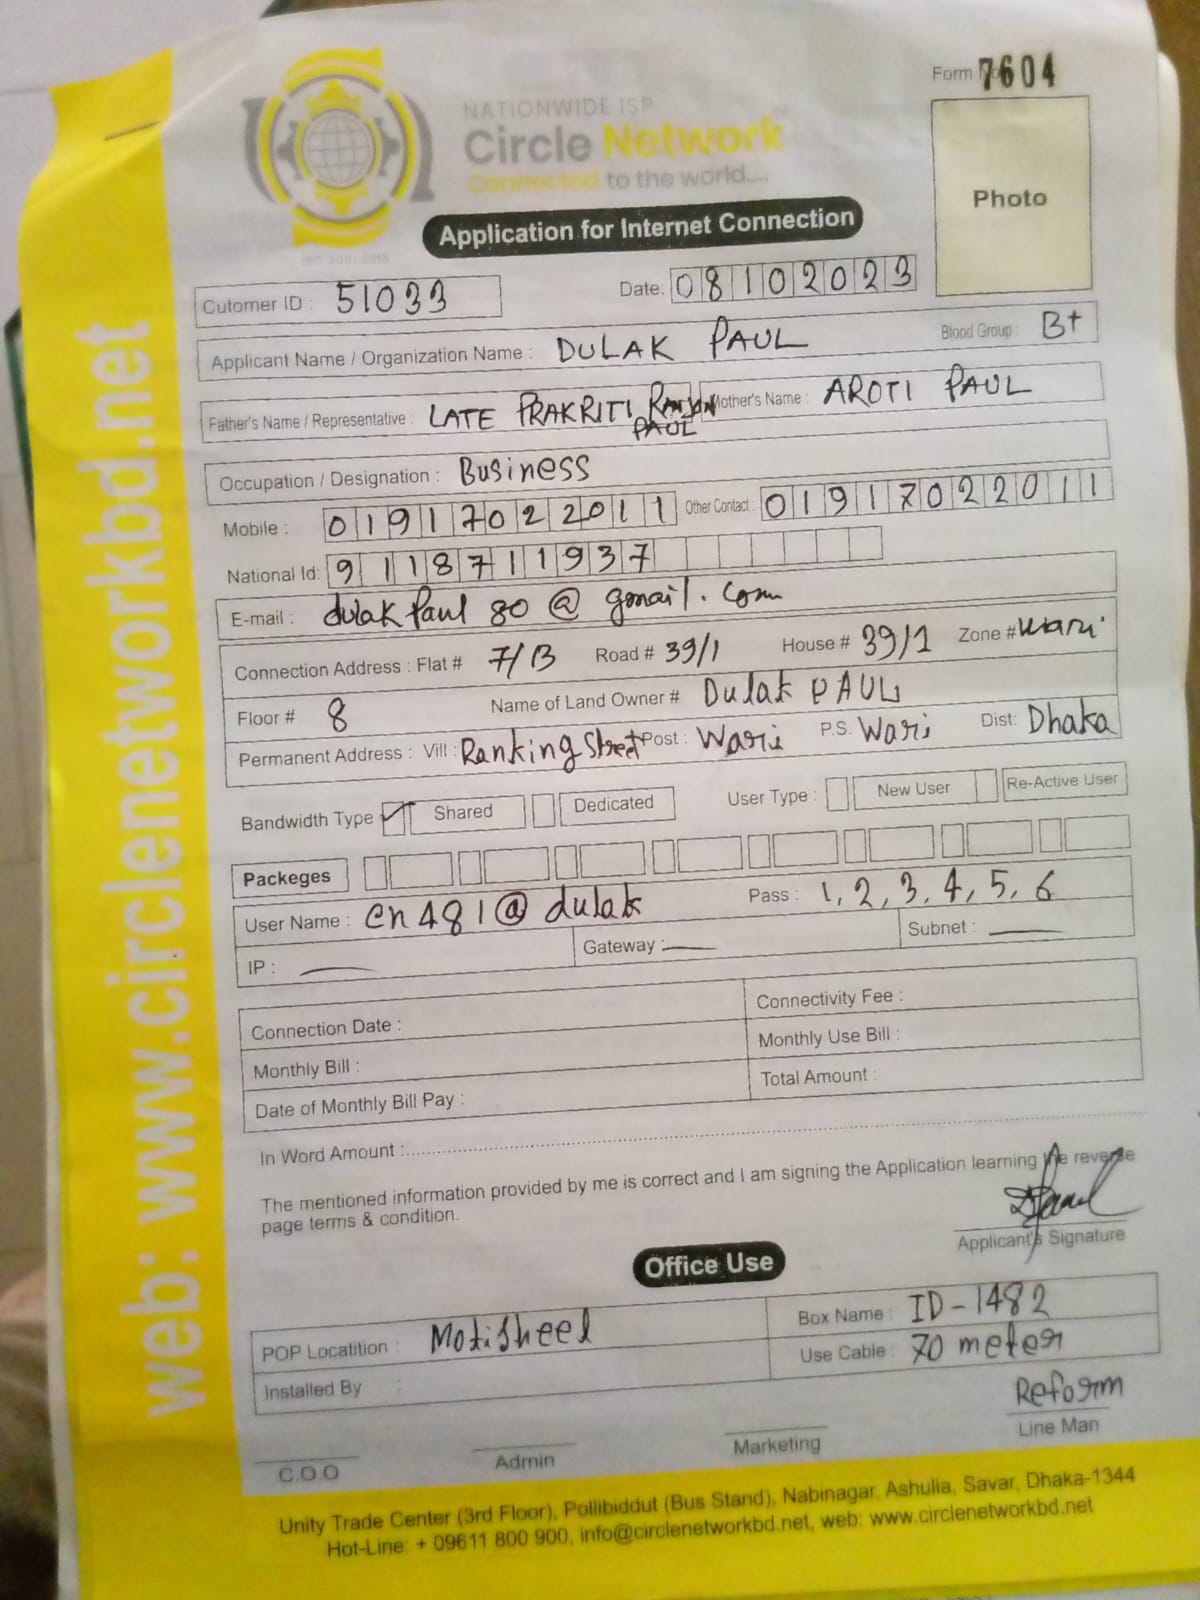 Form No 7604
NATIONWIDE ISP
Circle Network
Connected to the world.....
Photo
Application for Internet Connection
Cutomer ID : 51033 Date. 08102023
Applicant Name / Organization Name : DULAK PAUL Blood Group : B+
Father's Name / Representative : LATE PRAKRITI RANJAN PAUL Mother's Name : AROTI PAUL
Occupation / Designation : Business
Mobile : 01917022011 Other Contact : 01917022011
National Id: 9118711937
E-mail : dulakpaul80@gmail.com
Connection Address : Flat # 7/B Road # 39/1 House # 39/1 Zone # Wari
Floor # 8 Name of Land Owner # Dulak PAUL
Permanent Address : Vill : Ranking Street Post : Wari P.S. Wari Dist: Dhaka
Bandwidth Type Shared Dedicated User Type : New User Re-Active User
Packeges
User Name : cn481@dulak Pass : 1, 2, 3, 4, 5, 6
IP : — Gateway : — Subnet : —
Connection Date : Connectivity Fee :
Monthly Bill : Monthly Use Bill :
Date of Monthly Bill Pay : Total Amount :
In Word Amount :
The mentioned information provided by me is correct and I am signing the Application learning the reverse
page terms & condition.
Applicant's Signature
Office Use
POP Locatition : Motisheel Box Name : ID-1482
Installed By : Use Cable : 70 meter
Reform
C.O.O Admin Marketing Line Man
Unity Trade Center (3rd Floor), Pollibiddut (Bus Stand), Nabinagar, Ashulia, Savar, Dhaka-1344
Hot-Line: + 09611 800 900, info@circlenetworkbd.net, web: www.circlenetworkbd.net
web: www.circlenetworkbd.net